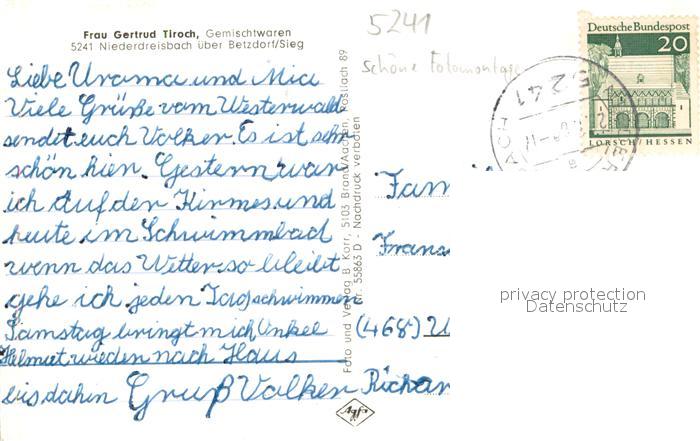 Frau Gertrud Tiroch, Gemischtwaren
5241 Niederdreisbach über Betzdorf/Sieg
Liebe Urama und Mia
Viele Grüße vom Westerwald
sendet euch Volker. Es ist sehr
schön hier. Gestern war
ich auf der Kirmes und
heute im Schwimmbad
wenn das Wetter so bleibt
gehe ich jeden Tag schwimmen
Samstag bringt mich Onkel
Helmut wieder nach Haus
bis dahin Gruß Volker
Foto und Verlag B. Korr, 5103 Brand/Aachen, Postfach 89
Nr. 55863 D - Nachdruck verboten
Agfa
5241
schöne Fotomontage
Deutsche Bundespost
20
LORSCH/HESSEN
5241
Fam
Franz
(468) U
Richar
privacy protection
Datenschutz